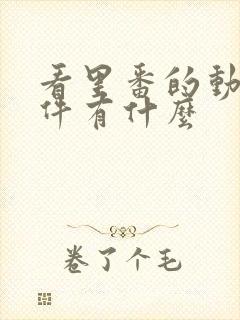 看里番的動
件有什麼
卷了个毛